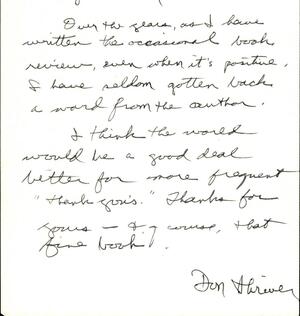 Over the years, as I have
written the occasional book
review, even when it's positive,
I have seldom gotten back
a word from the author.
I think the world
would be a good deal
better for more frequent
"thank you's." Thanks for
yours — & of course, that
fine book.
Don Shriver